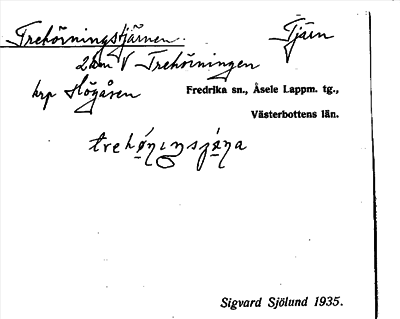 Trehörningstjärnen. Tjärn
2 km V Trehörningen
krp Högåsen Fredrika sn., Åsele Lappm. tg.,
Västerbottens län.
Sigvard Sjölund 1935.